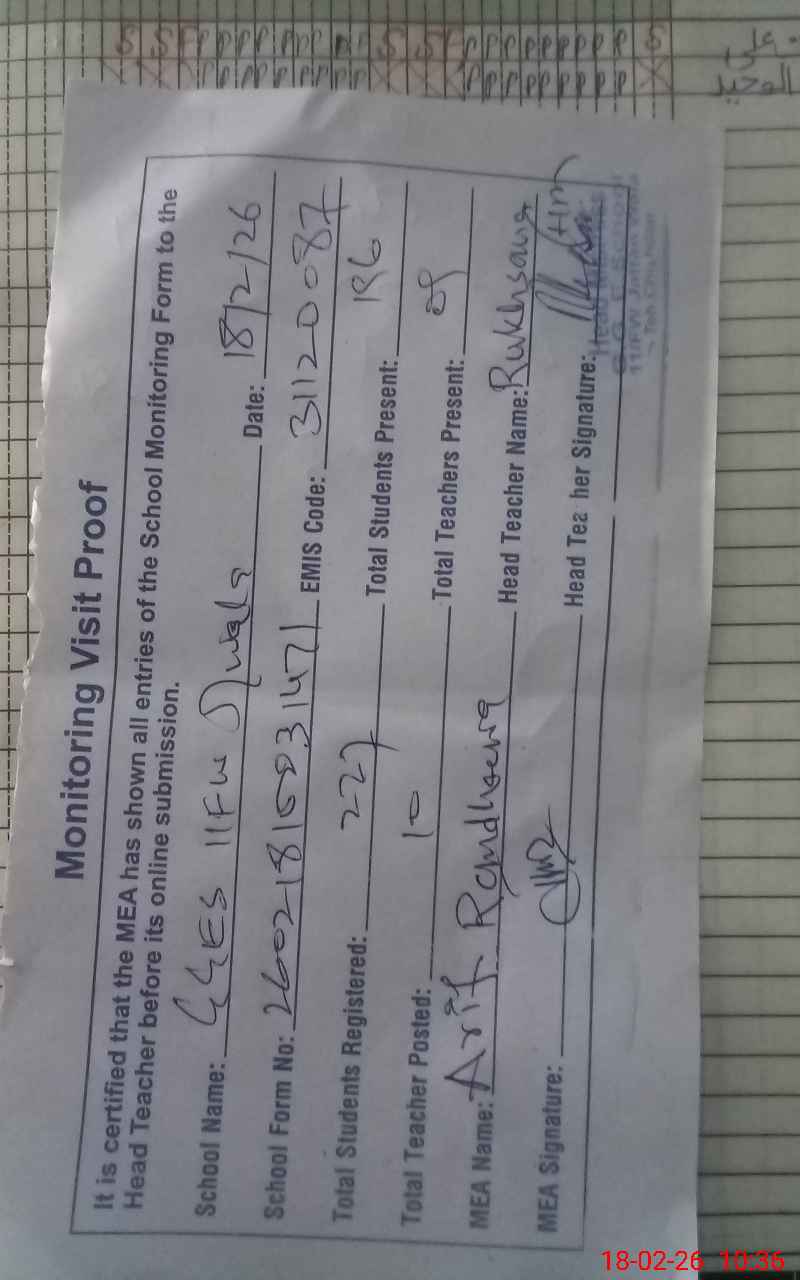 Monitoring Visit Proof
It is certified that the MEA has shown all entries of the School Monitoring Form to the
Head Teacher before its online submission.
School Name: GGES 11FW Date: 18/2/26
School Form No: EMIS Code: 31120087
Total Students Registered: 227 Total Students Present: 196
Total Teacher Posted: 10 Total Teachers Present: 09
MEA Name: Arif Randhawa Head Teacher Name: Rukhsana
MEA Signature: Head Teacher Signature:
18-02-26 10:36